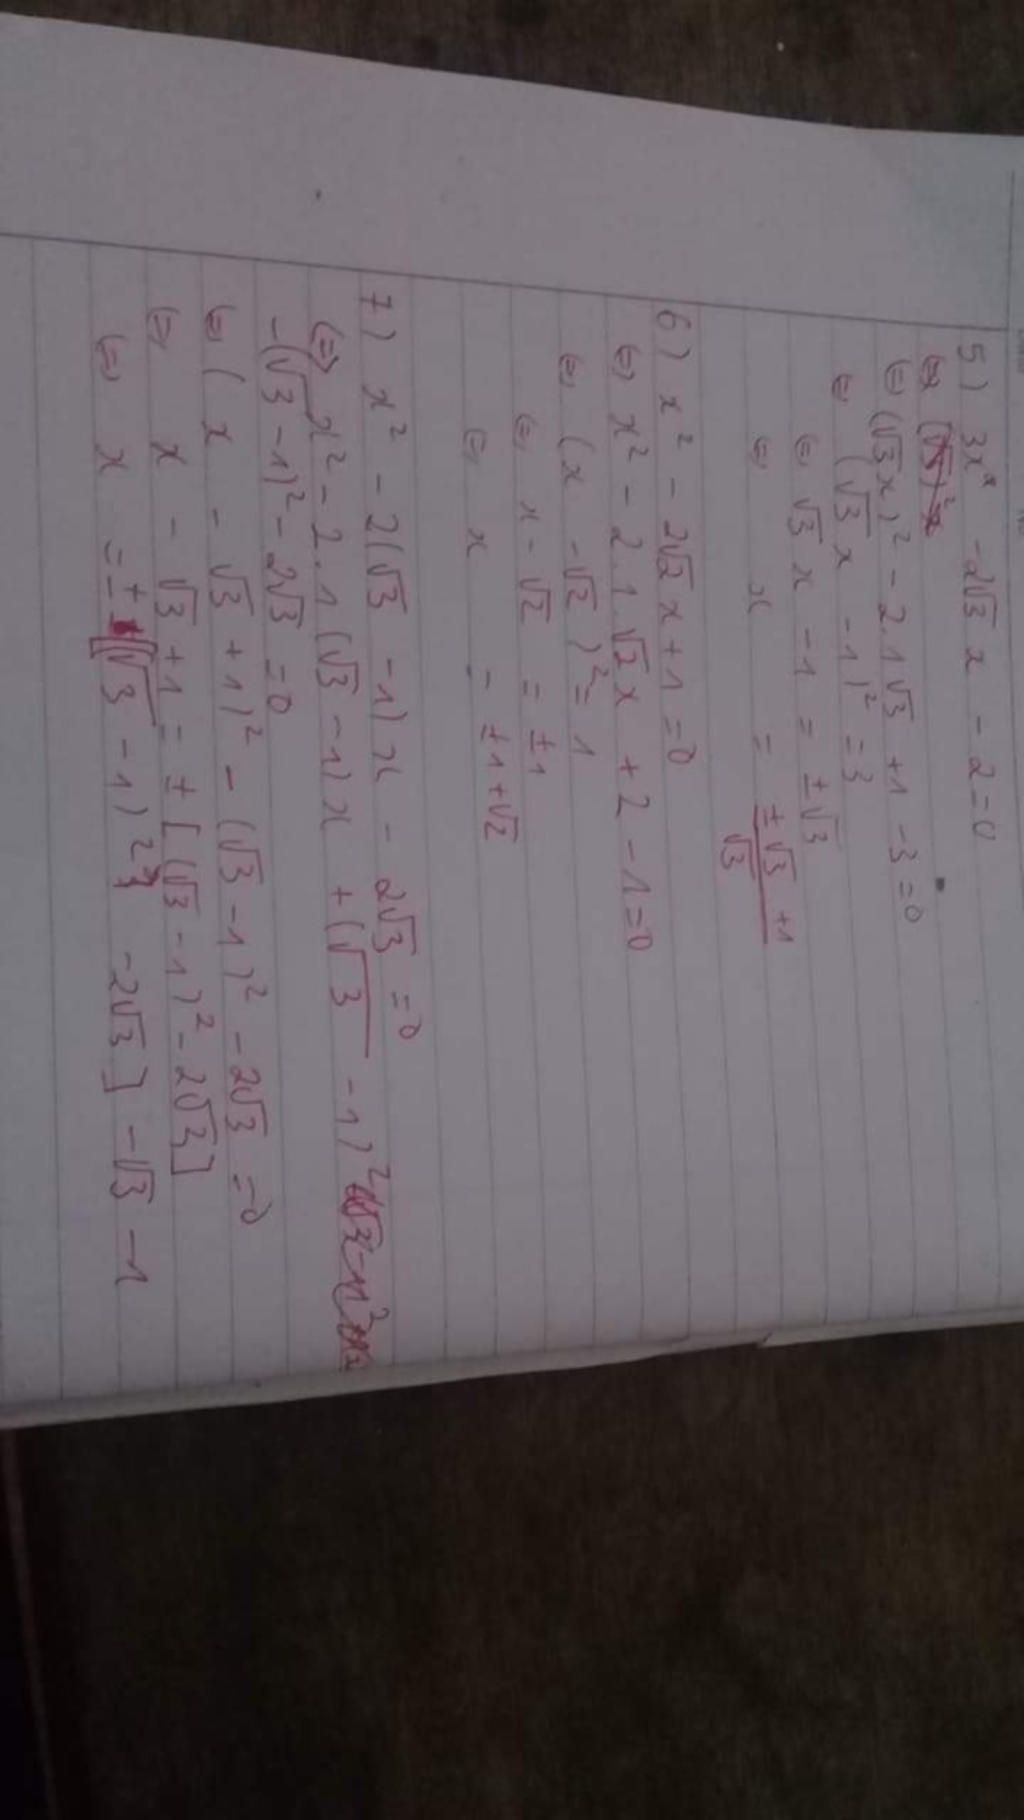 5) 3x² -2√3 x - 2=0
⇔ (√3x)² - 2.1√3 +1 -3=0
⇔ (√3x -1)² =3
⇔ √3 x -1 = ±√3
⇔ x = ±√3 +1 / √3
6) x² - 2√2x+1=0
⇔ x² - 2.1.√2x + 2 -1=0
⇔ (x -√2)² = 1
⇔ x - √2 = ±1
⇔ x = ±1+√2
7) x² - 2(√3 -1)x - 2√3 =0
⇔ x² - 2.1(√3 -1)x + (√3 -1)²
-(√3 -1)² - 2√3 =0
⇔ (x - √3 +1)² - (√3 -1)² -2√3 =0
⇔ x - √3 +1 = ± [(√3 -1)² - 2√3]
⇔ x = ± [(√3 -1)² -2√3] -√3 -1